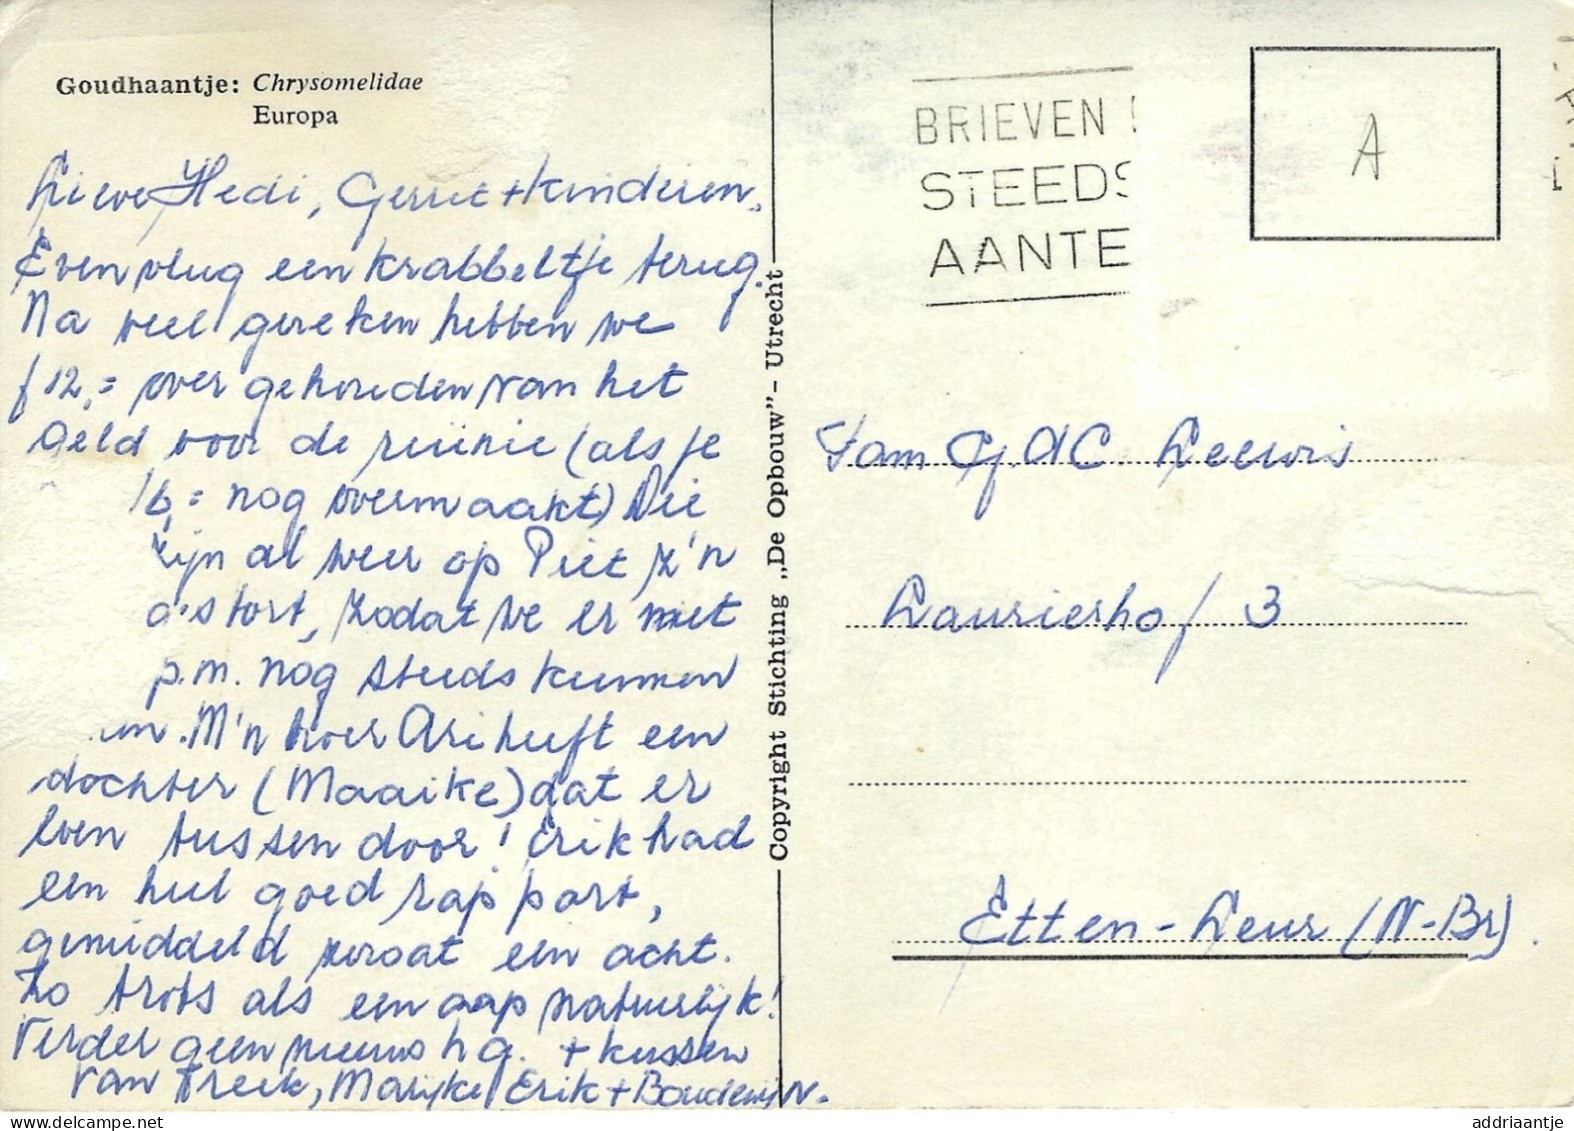 Goudhaantje: Chrysomelidae
Europa
Lieve Hedi, Gerrit + kinderen.
Even vlug een krabbeltje terug.
Na veel gereken hebben we
f 12,= over gehouden van het
geld voor de reünie (als je
16,= nog overmaakt) Die
zijn al weer op Piet z'n
gestort, zodat we er niet
p.m. nog steeds kunnen
M'n broer Ari heeft een
dochter (Maaike) dat er
even tussen door! Erik had
een heel goed rapport,
gemiddeld een acht.
Zo trots als een aap natuurlijk!
Verder geen nieuws h g. + kussen
van Treek, Marijke, Erik + Boudewijn.
Copyright Stichting „De Opbouw”- Utrecht
BRIEVEN
STEEDS
AANTE
A
Fam G.AC Leeuwis
Laurierhof 3
Etten-Leur (N-Br).
addriaantje